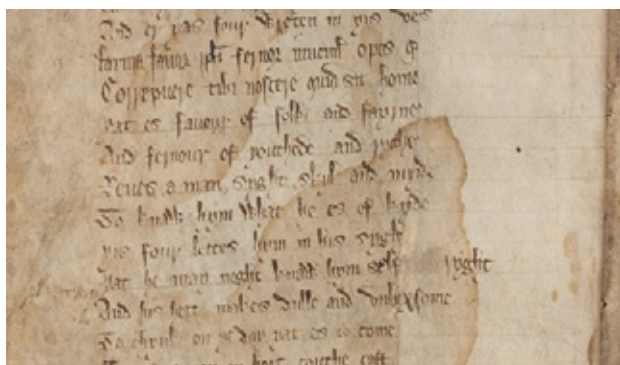 And er þas four wreten in þis vers
forma favor ppli fervor iuvenil opes q
Correpuere tibi noscere quid sit homo
þat es favour of folke and fayrnes
And fervour of youthede and ryches
Reves a man syght skil and mynde
To knaw hym what he es of kynde
þis four lettes hym in his syght
þat he may noght knaw hym self ryght
And his hert makes dulle and unbuxsome
To thynk on þe day þat es to come